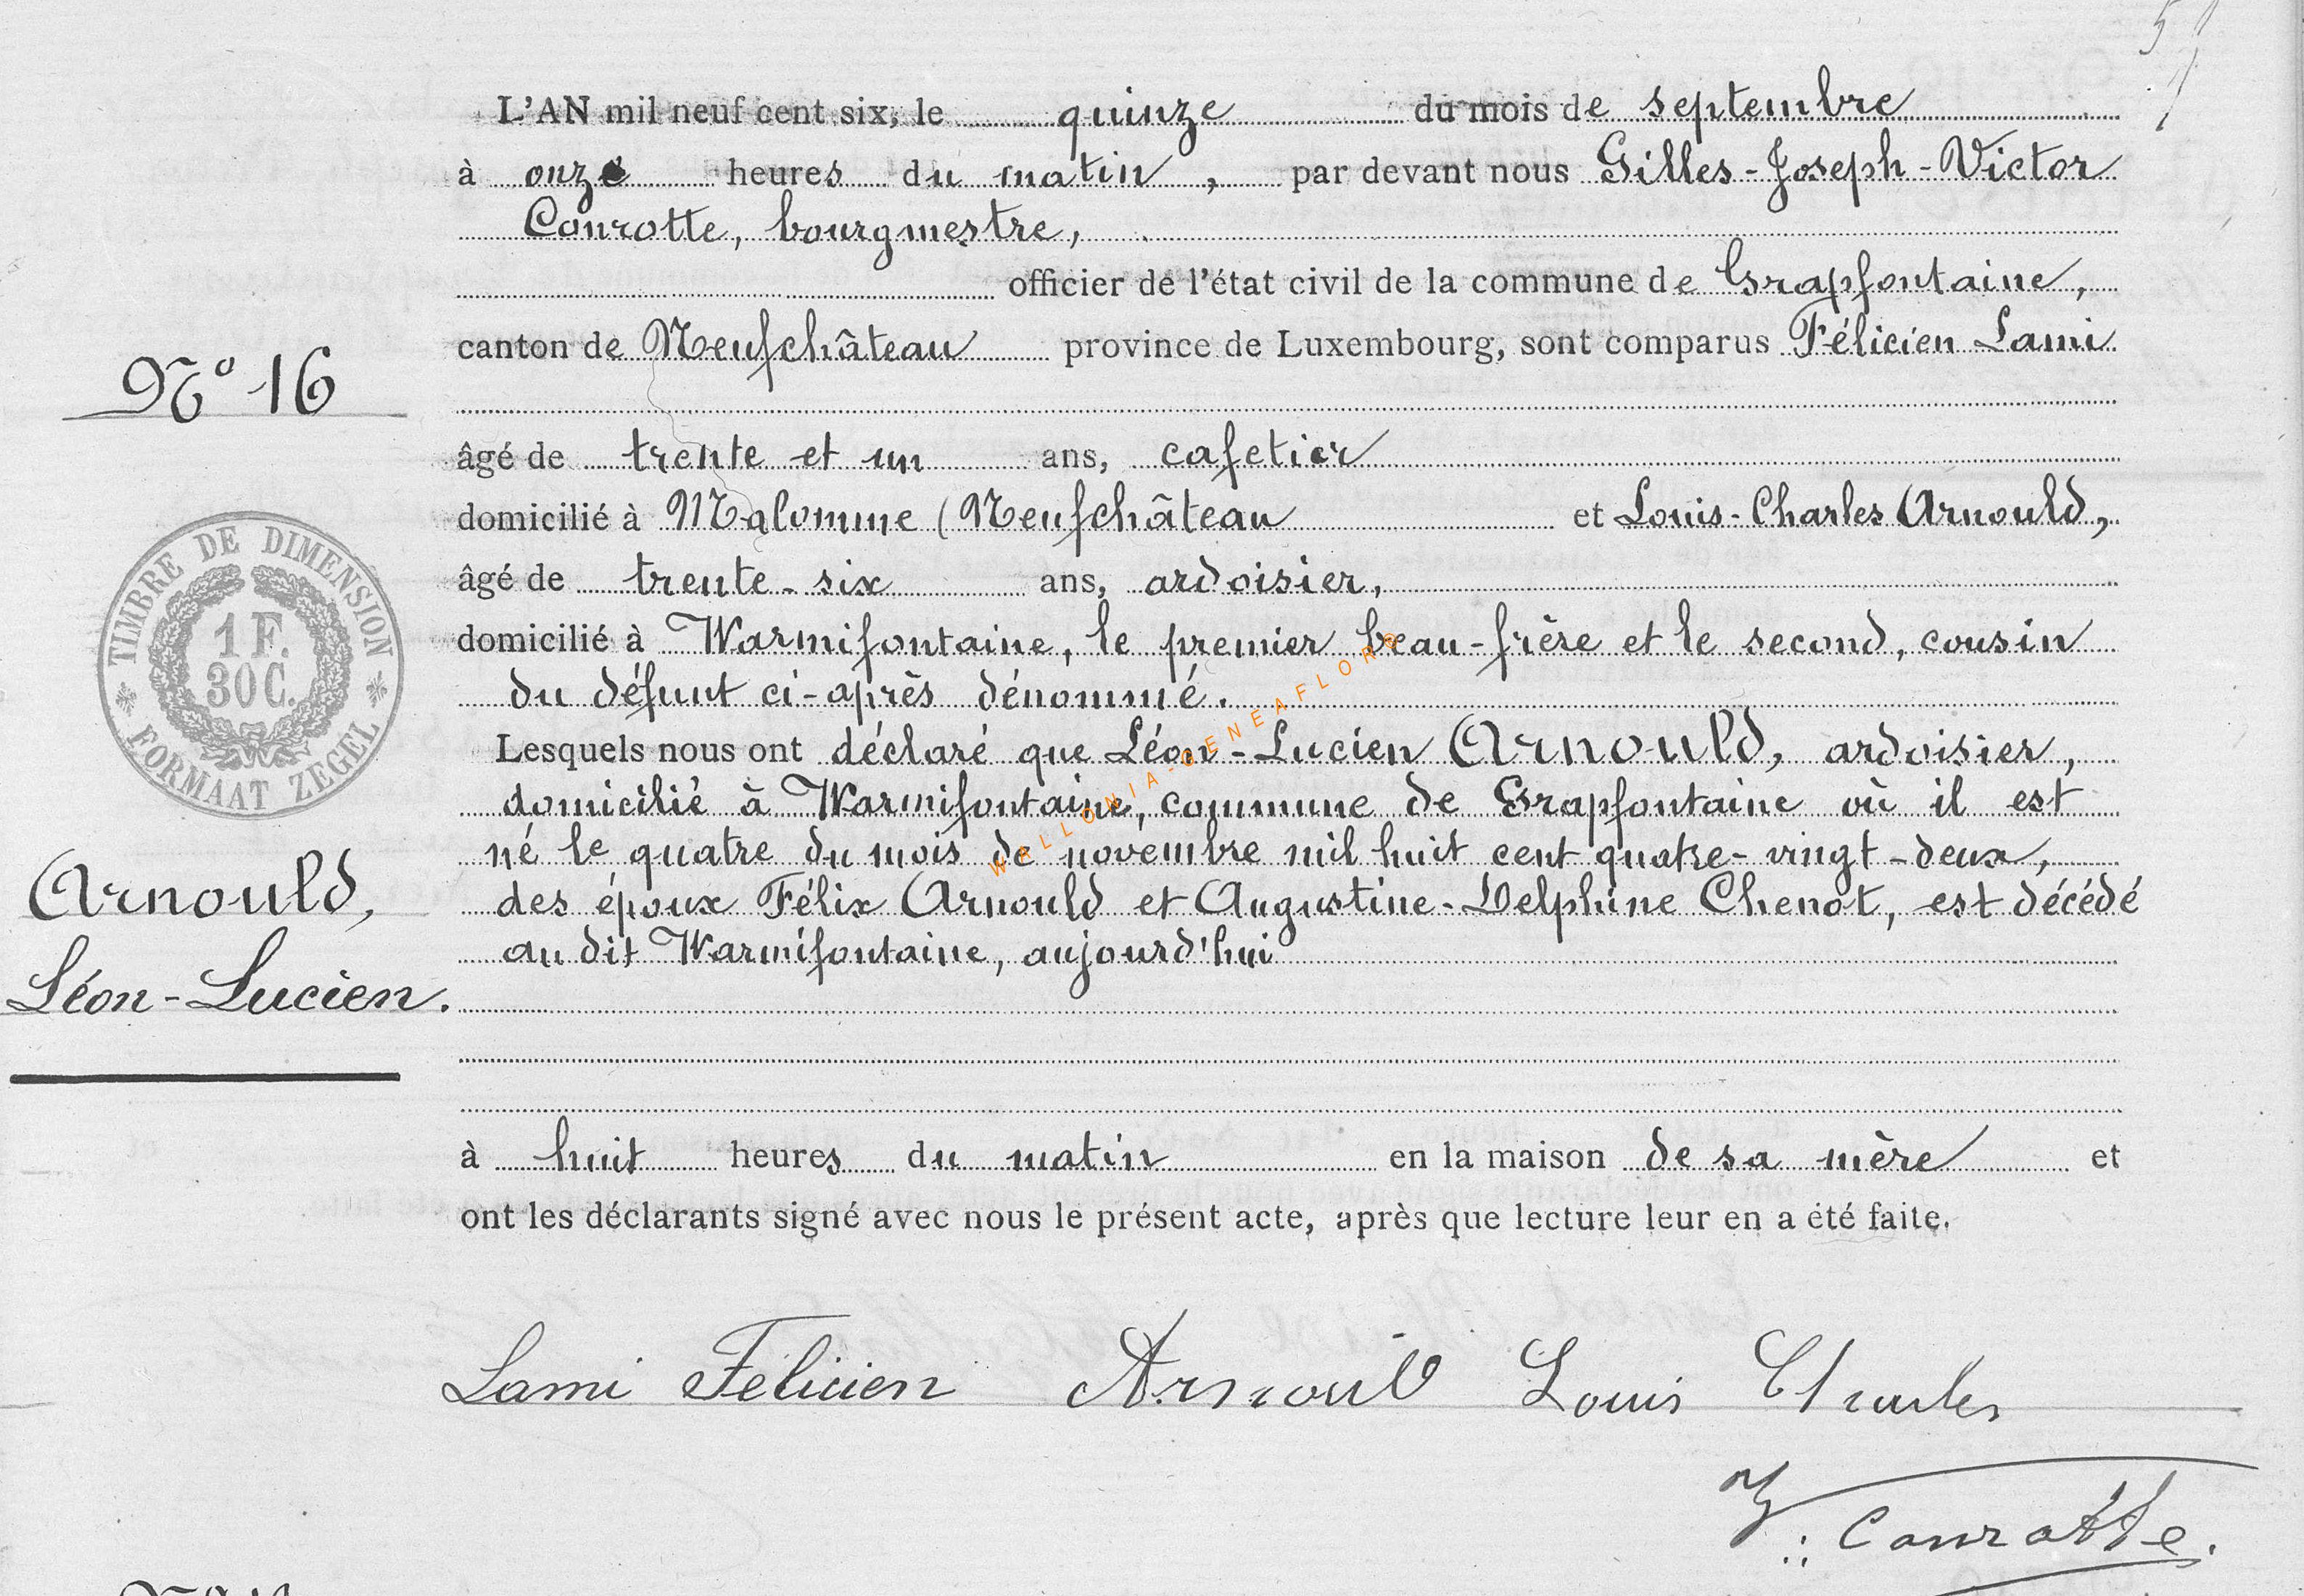 L'AN mil neuf cent six, le quinze du mois de septembre
à onze heures du matin, par devant nous Gilles-Joseph-Victor
Conrotte, bourgmestre,
officier de l'état civil de la commune de Grapfontaine,
canton de Neufchâteau province de Luxembourg, sont comparus Félicien Lami
N° 16
âgé de trente et un ans, cafetier
domicilié à Malomme (Neufchâteau et Louis-Charles Arnould,
âgé de trente-six ans, ardoisier,
domicilié à Warmifontaine, le premier beau-frère et le second, cousin
du défunt ci-après dénommé.
TIMBRE DE DIMENSION
1 F.
30 C.
FORMAAT ZEGEL
Lesquels nous ont déclaré que Léon-Lucien Arnould, ardoisier,
domicilié à Warmifontaine, commune de Grapfontaine où il est
né le quatre du mois de novembre mil huit cent quatre-vingt-deux,
des époux Félix Arnould et Augustine-Delphine Chenot, est décédé
au dit Warmifontaine, aujourd'hui
Arnould,
Léon-Lucien.
WALLONIA-GENEAFLORE
à huit heures du matin en la maison de sa mère et
ont les déclarants signé avec nous le présent acte, après que lecture leur en a été faite.
Lami Félicien Arnould Louis Charles
Conrotte.